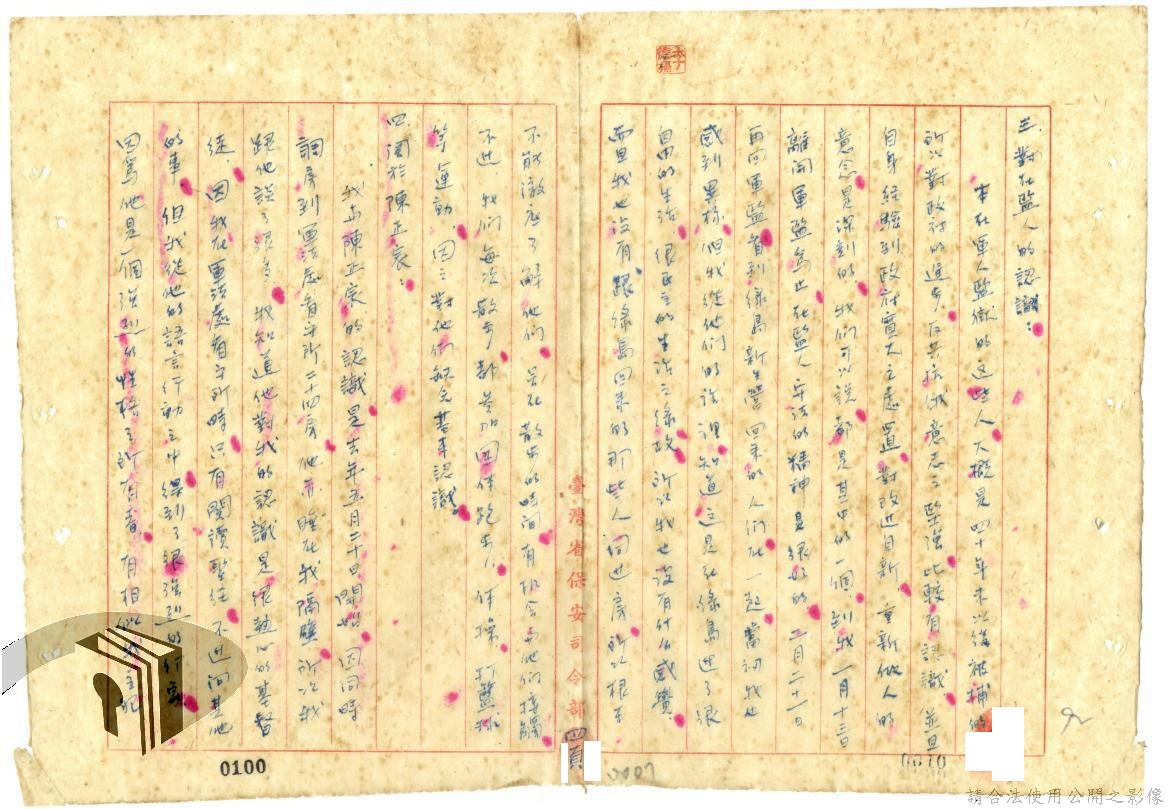 三、對在監人的認識：
本在軍人監獄的這些人大概是四十年末以後被捕的
所以對政府的進步反共抗俄意志之堅強比較有認識並且
自身經驗到政府寬大之處置對改進自新、重新做人的
意念是深刻的、我們可以說都是其中的一個、到我一月十三日
離開軍監為止在監人守法的精神是很好的、二月二十一日
再回軍監看到綠島新生營回來的人們在一起當初我也
感到異樣、但我從他們的話裡知道這是在綠島過了很
自由的生活、很民主的生活之緣故、所以我也沒有什么感覺
而且我也沒有跟綠島回來的那些人同过房所以根本
不能澈底了解他們、只在散步的時間有机会与他們接觸
不过、我們每次散步都參加團体跑步、体操、打籃球
等運動、因之對他們缺乏基本認識。
四、関於陳正宸：
我与陳正宸的認識是去年五月二十日開始、因同時
調房到軍法處看守所二十四房、他而睡在我隔壁所以我
跟他談了很多、我知道他對我的認識是很熱心的基督
徒、因我在軍法處看守所時只有閱讀聖经、不过问其他
的事、但我從他的語言行動之中得到了很強烈的印象
因為他是一個強烈的性格之所有者、有相似我主犯
臺灣省保安司令部
四頁
0100
0010
0007
請合法使用公開之影像